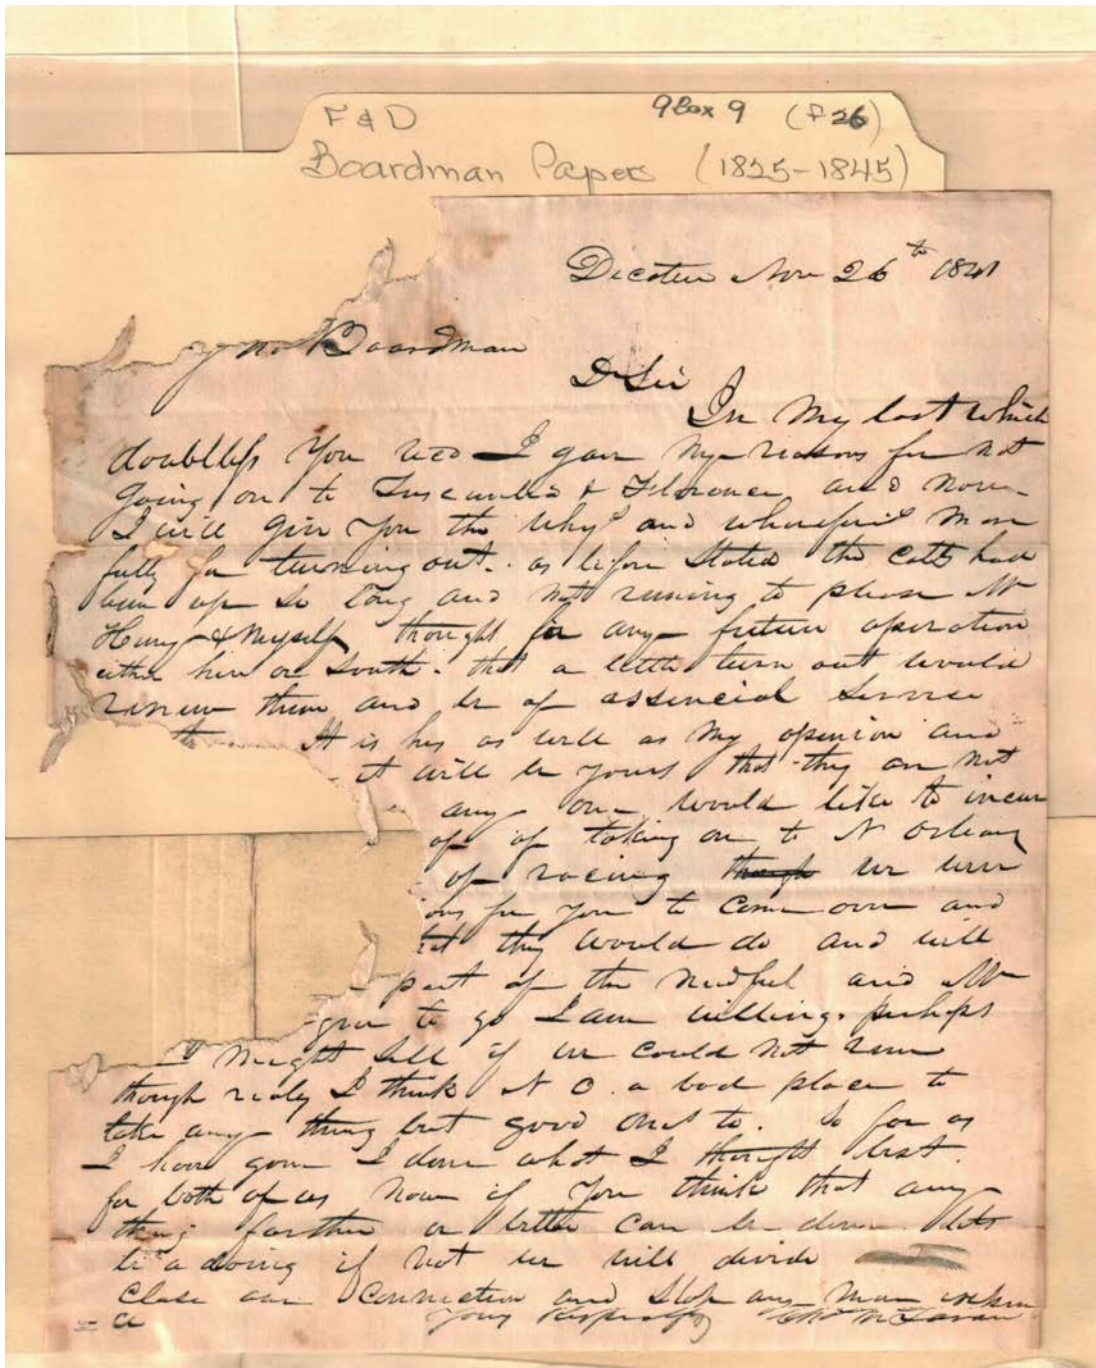 F & D Box 9 (f 26)
Boardman Papers (1825-1845)
Decatur Nov 26th 1841
Jno Boardman
D Sir
In My last which
doubtless You recd I gave My reasons for not
Going on to Tuscumbia & Florence and now
I will Give You the Why and wherefore More
fully for turning out. as before Stated the Colts had
been up so long and not running to please Mr
Henry & Myself thought for any future operation
either here or South. that a little turn out would
renew them and be of assencial Service
It is his as well as My opinion and
it will be yours that they are not
any one would like to incur
of of taking on to N Orleans
of racing though we were
ous for You to Come over and
hat they would do and will
part of the Needful and Mr
gree to go I am willing. perhaps
I Might Sell if we could Not run
though realy I think N O. a bad place to
take any thing but good ones to. So far as
I have gone I done what I thought best
for both of us Now if You think that any
thing farther or better can be done lets
be a doing if not we will divide
Close our Connection and Stop any More expen
= ce Yours Respectfy Thos McLaran